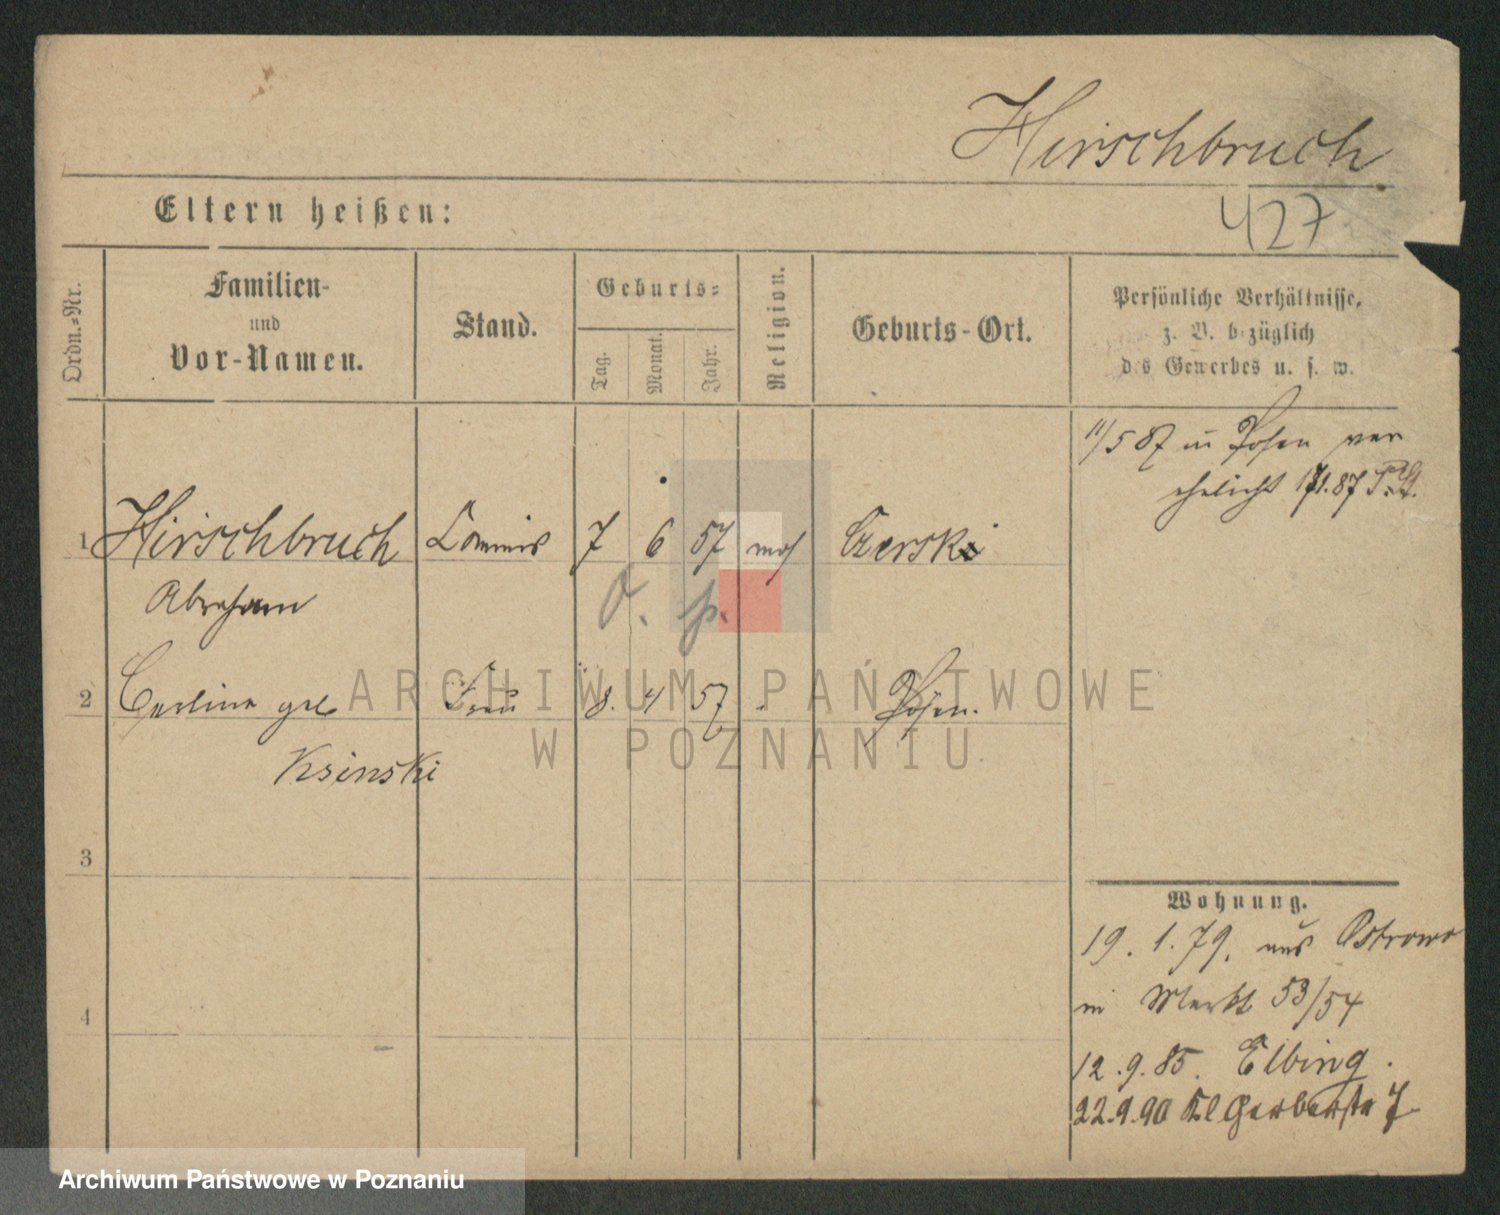 Hirschbruch
427
Eltern heißen:
Ordn.-Nr.
Familien-
und
Vor-Namen.
Stand.
Geburts-
Tag.
Monat.
Jahr.
Religion.
Geburts-Ort.
Persönliche Verhältnisse,
z. B. bezüglich
des Gewerbes u. s. w.
11/5 87 in Posen ver
ehelicht
1 Hirschbruch Commis 7 6 57 mos Czerski
Abraham
2 Frau 8. 4 57 Posen.
Ksinski
3
4
Wohnung.
19. 1. 79. aus Ostrowo
in Markt 53/54
12. 9. 85. Elbing.
22.9.90 Kl Gerberstr 7
ARCHIWUM PAŃSTWOWE
W POZNANIU
Archiwum Państwowe w Poznaniu